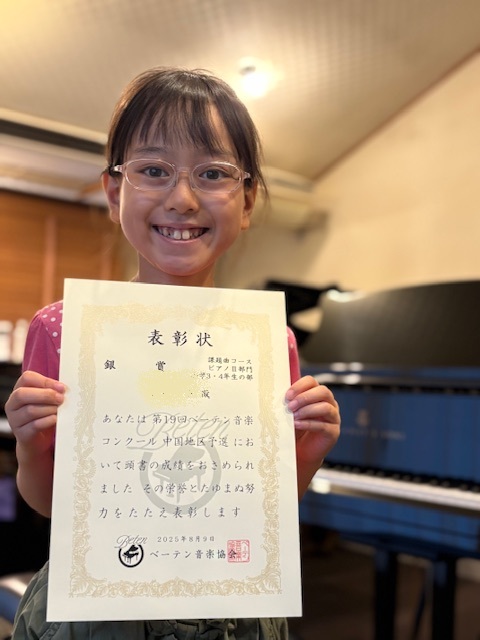 表彰状
銀　賞
課題曲コース
ピアノⅡ部門
小学3・4年生の部
殿
あなたは 第19回ベーテン音楽
コンクール 中国地区予選 にお
いて頭書の成績をおさめられ
ました その栄誉とたゆまぬ努
力をたたえ表彰します
2025年8月9日
Beten
ベーテン音楽協会